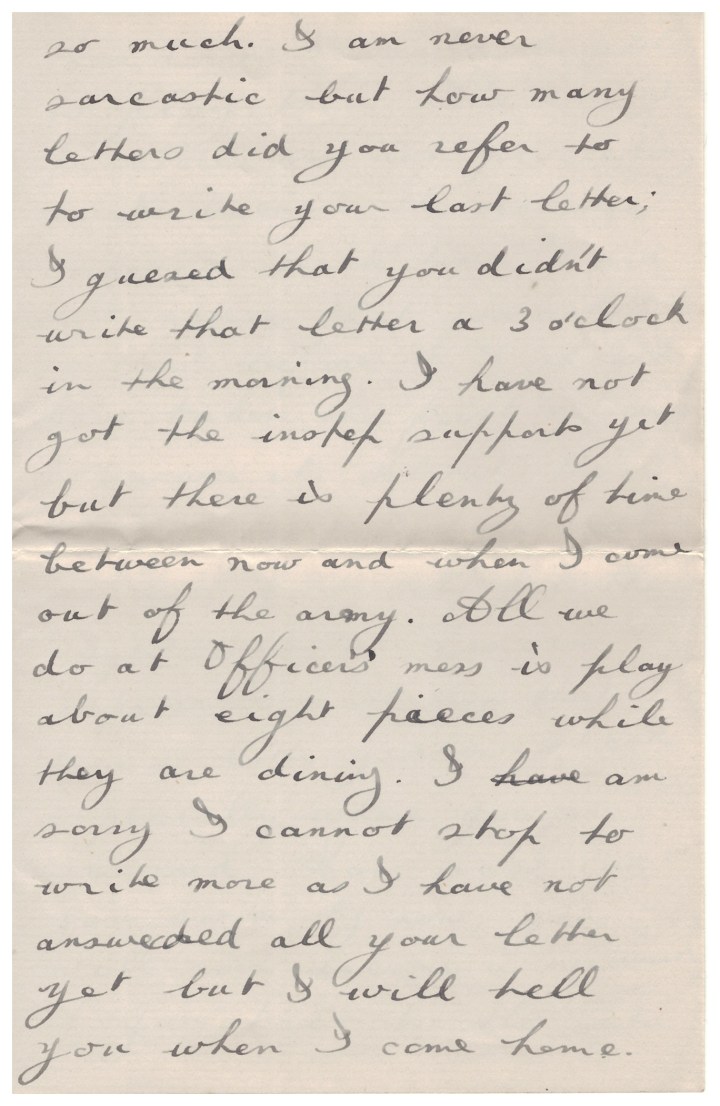 so much. I am never
sarcastic but how many
letters did you refer to
to write your last letter;
I guesed that you didn't
write that letter a 3 o'clock
in the morning. I have not
got the instep supports yet
but there is plenty of time
between now and when I come
out of the army. All we
do at Officers mess is play
about eight pieeces while
they are dining. I have am
sorry I cannot stop to
write more as I have not
answered all your letter
yet but I will tell
you when I come home.